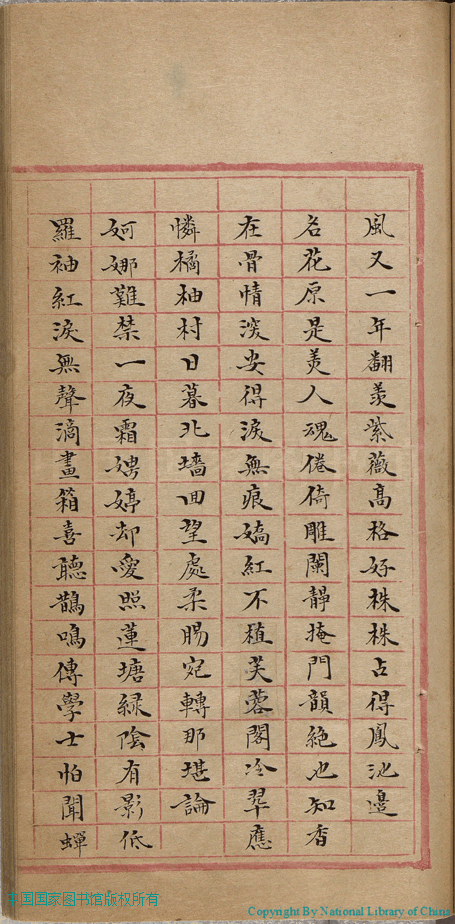 風又一年翻羨紫薇高格好株株占得鳳池邊
名花原是美人魂倦倚雕闌靜掩門韻絶也知香
在骨情深安得淚無痕嬌紅不植芙蓉閣冷翠應
憐橘柚村日暮北墻回望處柔腸宛轉那堪論
婀娜難禁一夜霜娉婷却愛照蓮塘緑陰有影低
羅袖紅淚無聲滴畫箱喜聽鵲鳴傳學士怕聞蟬
中国国家图书馆版权所有
Copyright By National Library of China